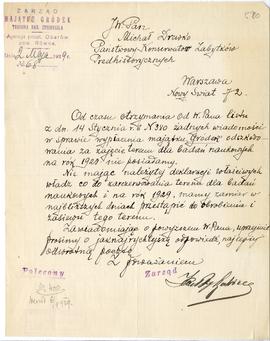 ZARZĄD
MAJĄTKU GRÓDEK
Agencja poczt. Obarów
pow. Równe.
2 Maja 1929 r.
580
J. W. Pan
Michał Drewko
Państwowy Konserwator Zabytków
Przedhistorycznych
Warszawa
Nowy Świat 72.
Od czasu otrzymania od W. Pana listu
z dn. 14 Stycznia r. b. No 340 żadnych wiadomości
w sprawie wypłacenia majątku Gródek odszkodo-
wania za zajęcie terenu dla badań naukowych
na rok 1928 nie posiadamy.
Nie mając należytej deklaracji
władz co do zarezerwowania terenu dla badań
naukowych i na rok 1929 mamy zamiar w
najbliższych dniach przystąpić do obrobienia i
zasiewu tego terenu.
Zawiadamiając o powyższem W. Pana, uprzejmie
prosimy o jaknajrychlejszą odpowiedź, najlepiej
odwrotną pocztą.
Z poważaniem
Polecony
Zarząd